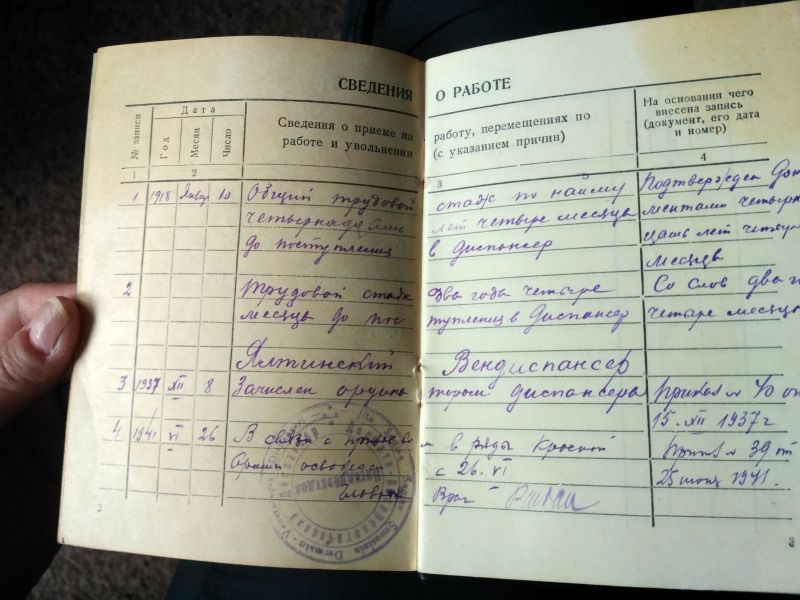 СВЕДЕНИЯ О РАБОТЕ
№ записи
Дата
Год
Месяц
Число
Сведения о приеме на работу, перемещениях по
работе и увольнении (с указанием причин)
На основании чего
внесена запись
(документ, его дата
и номер)
1 2 3 4
1 1918 Январ 10 Общий трудовой стаж по найму Подтвержден Док
четырнадцать лет четыре месяца ментами четырна
до поступления в диспансер цать лет четыре
месяца
2 Трудовой стаж два года четыре Со слов два го
месяца до поступления в диспансер четыре месяца
Ялтинский Вендиспансер
3 1937 XII 8 Зачислен диспансера Приказ № 40 от
15. XII 1937 г
4 1941 VI 26 В связи с в ряды Красной Приказ № 39 от
с 26. VI 25 1941.
Врач
2
3